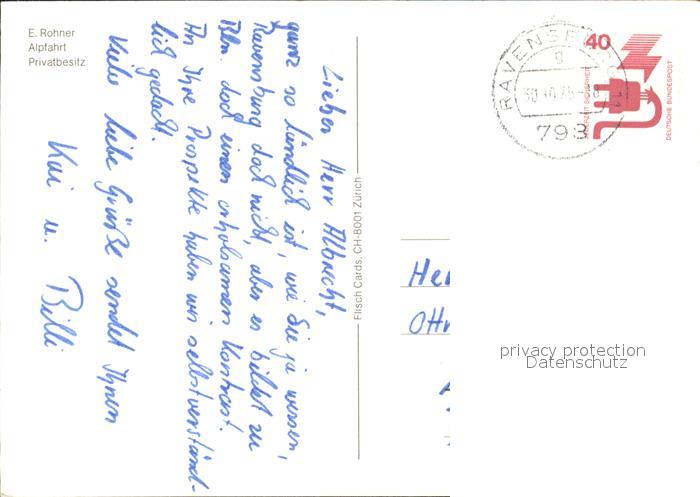 E. Rohner
Alpfahrt
Privatbesitz
Lieber Herr Albrecht,
ganz so ländlich ist, wie Sie ja wissen,
Ravensburg doch nicht, aber es bildet zu
Bln. doch einen erholsamen Kontrast.
An Ihre Prospekte haben wir selbstverständ-
lich gedacht.
Viele liebe Grüße sendet Ihnen
Kui u. Billi
Flisch Cards, CH-8001 Zürich
RAVENSBURG
g
30.10.75
798
40
JEDERZEIT SICHERHEIT
DEUTSCHE BUNDESPOST
Her
Ottm
privacy protection
Datenschutz